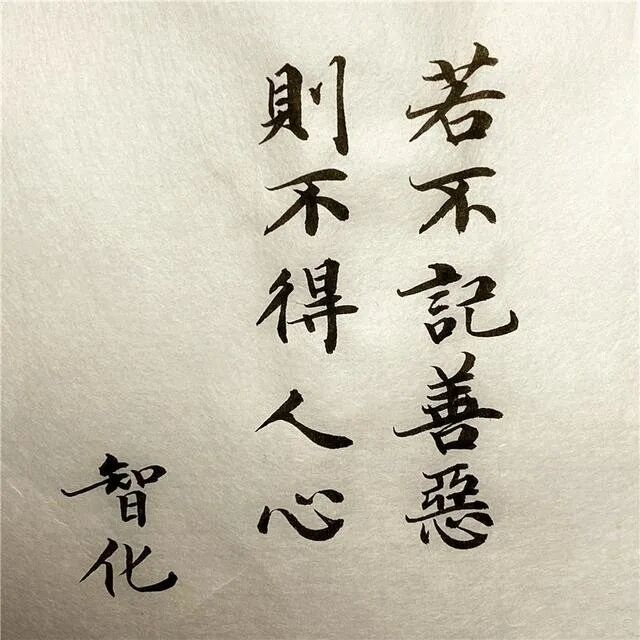 若不記善惡
則不得人心
智化